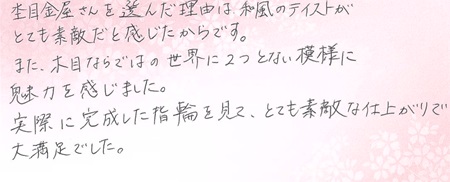 杢目金屋さんを選んだ理由は、和風のテイストが
とても素敵だと感じたからです。
また、木目ならではの世界に2つとない模様に
魅力を感じました。
実際に完成した指輪を見て、とても素敵な仕上がりで
大満足でした。